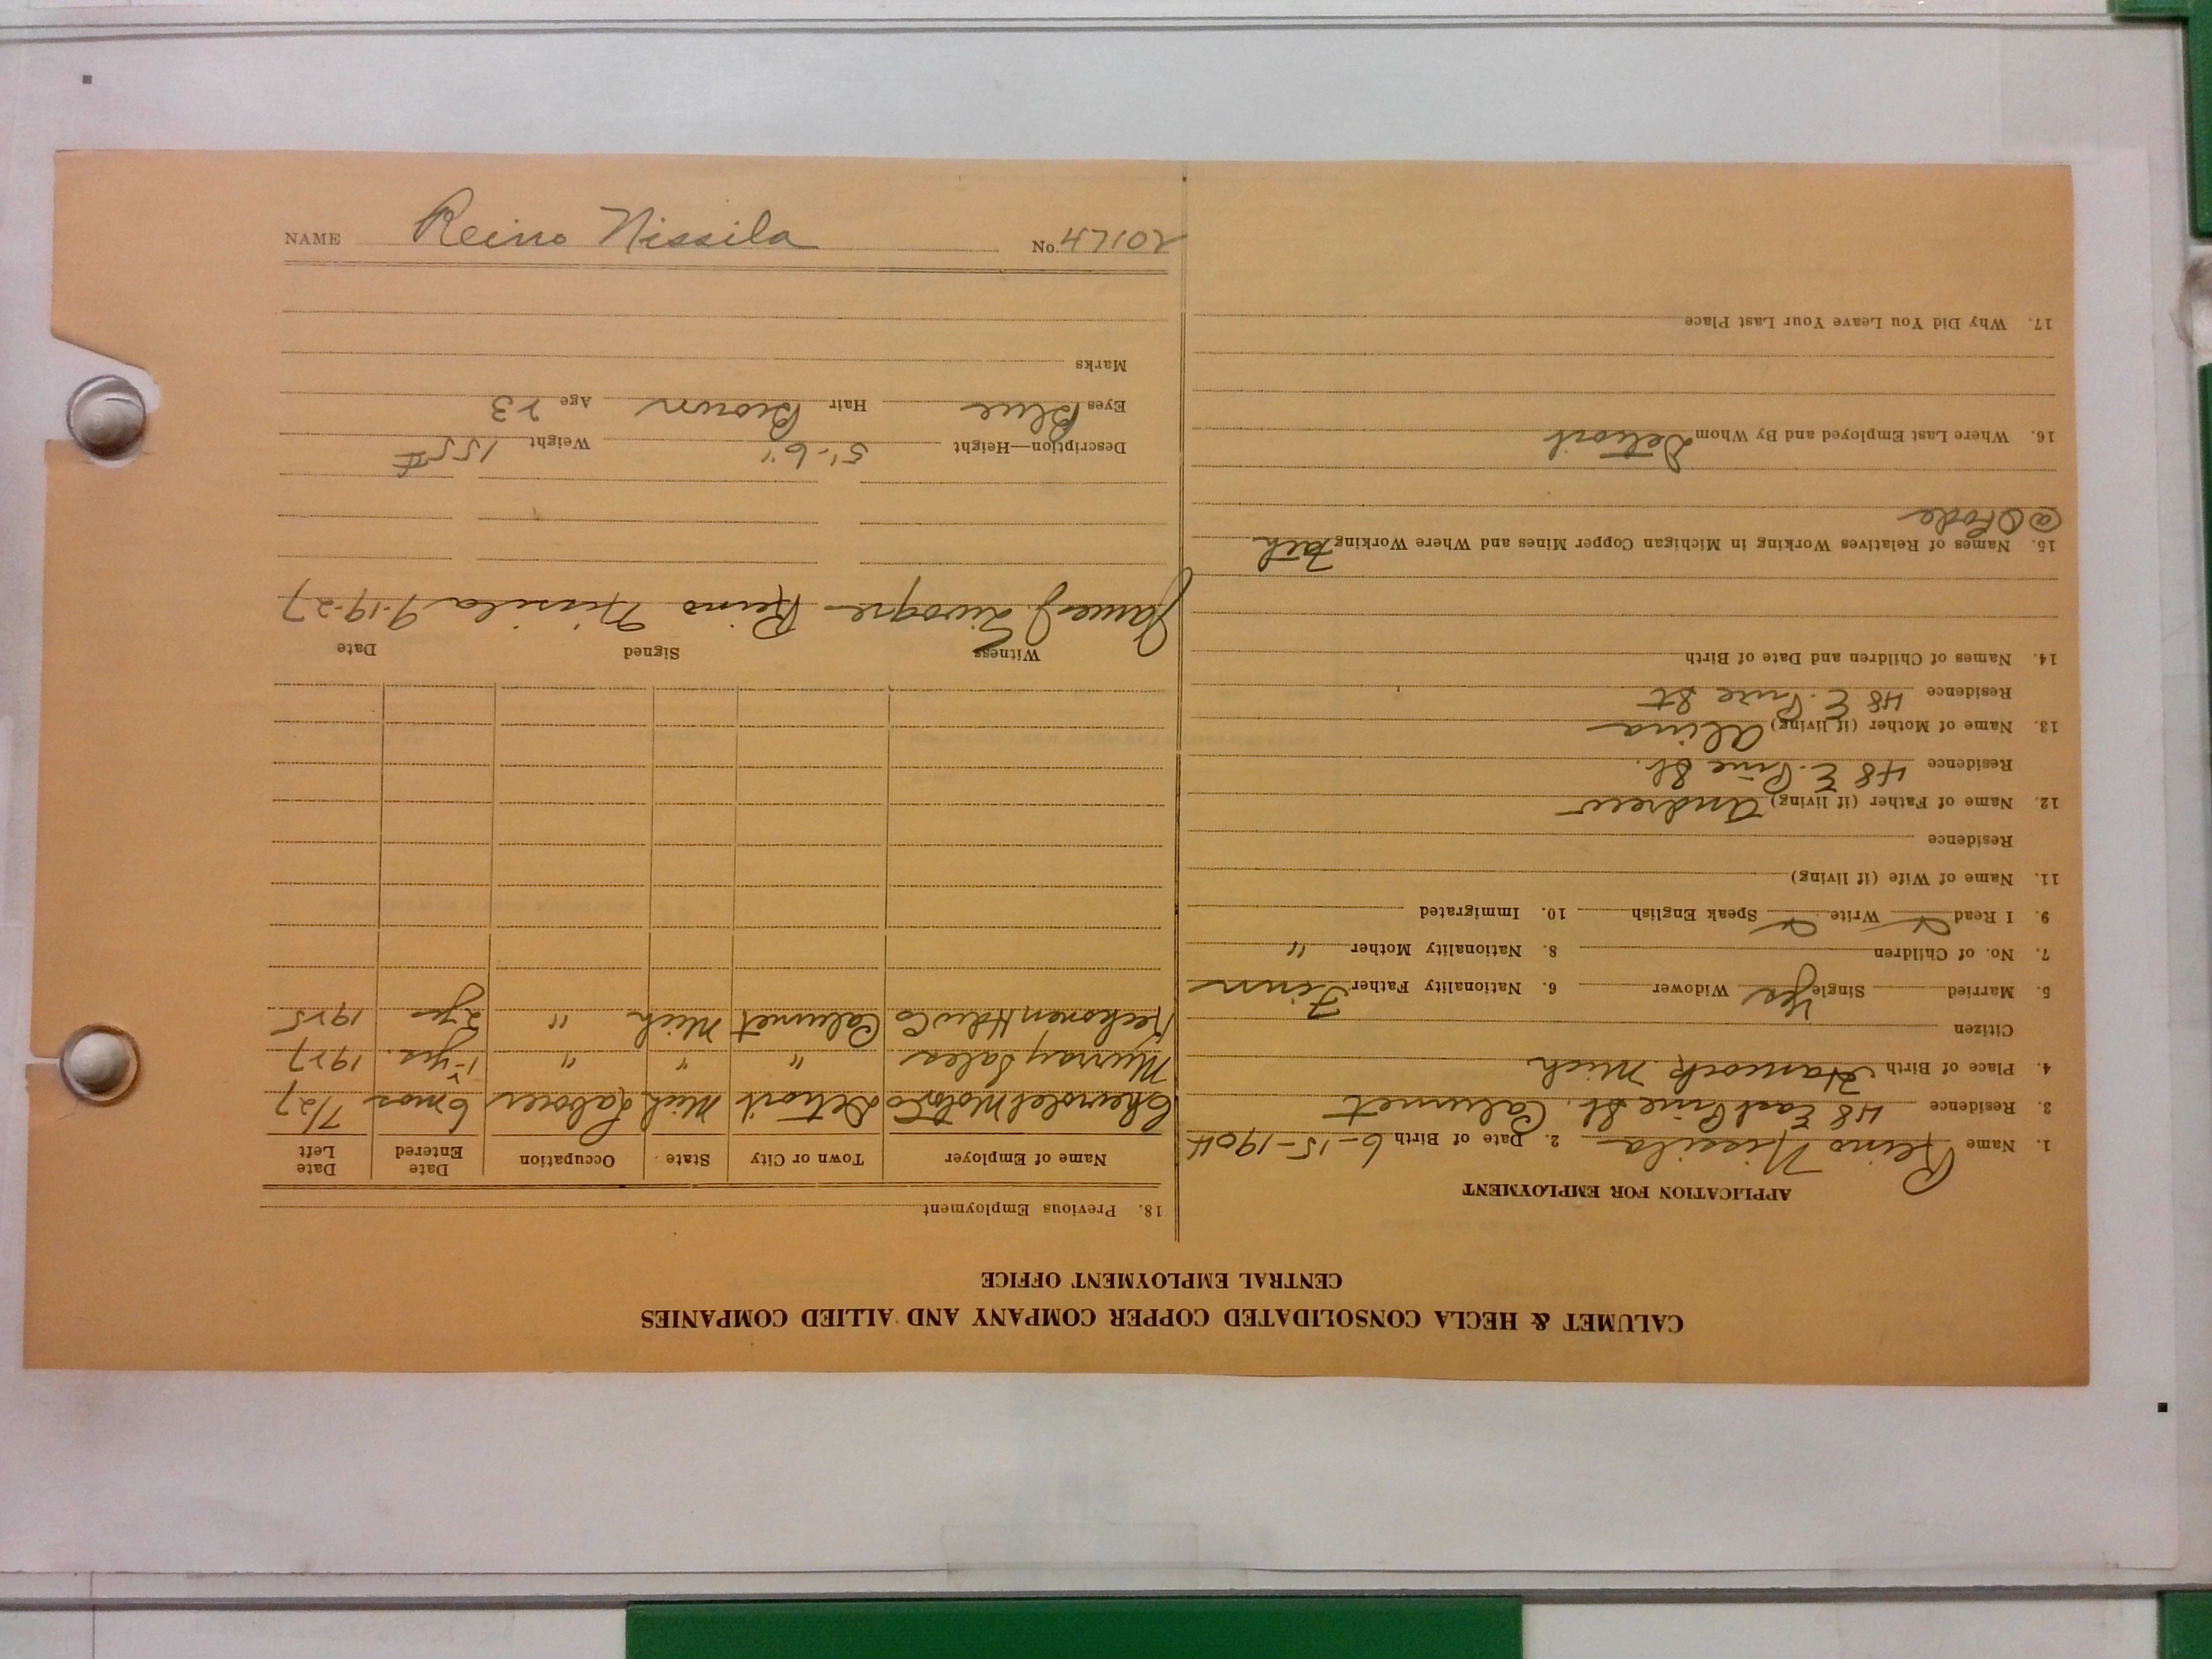 CALUMET & HECLA CONSOLIDATED COPPER COMPANY AND ALLIED COMPANIES
CENTRAL EMPLOYMENT OFFICE
APPLICATION FOR EMPLOYMENT
1. Name Reino Nissila 2. Date of Birth 6-15-1904
3. Residence 48 East Pine St. Calumet
4. Place of Birth Hancock Mich
Citizen
5. Married Single Yes Widower 6. Nationality Father Finn
7. No. of Children 8. Nationality Mother "
9. I Read Write Speak English 10. Immigrated
11. Name of Wife (if living)
Residence
12. Name of Father (if living) Andrew
Residence 48 E. Pine St.
13. Name of Mother (if living) Alina
Residence 48 E. Pine St
14. Names of Children and Date of Birth
15. Names of Relatives Working in Michigan Copper Mines and Where Working
16. Where Last Employed and By Whom Detroit
17. Why Did You Leave Your Last Place
18. Previous Employment
Name of Employer Town or City State Occupation Date Entered Date Left
Chevrolet Motor Co Detroit Mich Laborer 6 mos 7/27
Murray Sales " " " 1927
Calumet Mich " 2 yrs 1925
Witness Signed Date
James J. Reino Nissila 9-19-27
Description—Height 5'-6" Weight 155#
Eyes Blue Hair Brown Age 23
Marks
NAME Reino Nissila No.